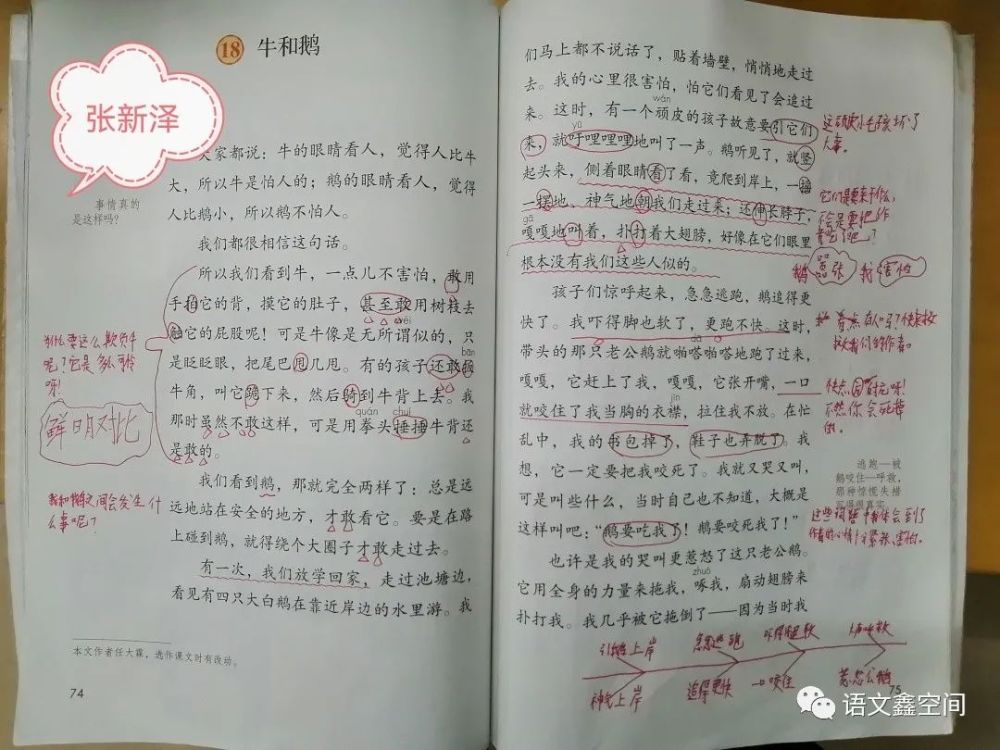 张新泽
18 牛和鹅
大家都说：牛的眼睛看人，觉得人比牛
大，所以牛是怕人的；鹅的眼睛看人，觉得
人比鹅小，所以鹅不怕人。
事情真的
是这样吗？
我们都很相信这句话。
所以我们看到牛，一点儿不害怕，敢用
手拍它的背，摸它的肚子，甚至敢用树枝去
触它的屁股呢！可是牛像是无所谓似的，只
wèi
是眨眨眼，把尾巴甩几甩。有的孩子还敢扳
牛角，叫它跪下来，然后骑到牛背上去。我
quán chuí
那时虽然不敢这样，可是用拳头捶捶牛背还
是敢的。
我们看到鹅，那就完全两样了：总是远
远地站在安全的地方，才敢看它。要是在路
上碰到鹅，就得绕个大圈子才敢走过去。
有一次，我们放学回家，走过池塘边，
看见有四只大白鹅在靠近岸边的水里游。我
为什么要这么欺负牛
呢？它是多么可怜
呀！
鲜明对比
我和鹅之间会发生什
么事呢？
本文作者任大霖，选作课文时有改动。
74
们马上都不说话了，贴着墙壁，悄悄地走过
去。我的心里很害怕，怕它们看见了会追过
wán
来。这时，有一个顽皮的孩子故意要引它们
yū
来，就吁哩哩哩地叫了一声。鹅听见了，就竖
起头来，侧着眼睛看了看，竟爬到岸上，一摇
一摆地、神气地朝我们走过来；还伸长脖子，
gā
嘎嘎地叫着，扑打着大翅膀，好像在它们眼里
根本没有我们这些人似的。
鹅 嚣张 我 害怕
孩子们惊呼起来，急急逃跑，鹅追得更
快了。我吓得脚也软了，更跑不快。这时，
带头的那只老公鹅就啪嗒啪嗒地跑了过来，
嘎嘎，它赶上了我，嘎嘎，它张开嘴，一口
jīn
就咬住了我当胸的衣襟，拉住我不放。在忙
乱中，我的书包掉了，鞋子也弄脱了。我
想，它一定要把我咬死了。我就又哭又叫，
可是叫些什么，当时自己也不知道，大概是
这样叫吧：“鹅要吃我了！鹅要咬死我了！”
逃跑—被
鹅咬住—呼救，
那种惊慌失措
也许是我的哭叫更惹怒了这只老公鹅。
zhuó
它用全身的力量来拖我，啄我，扇动翅膀来
扑打我。我几乎被它拖倒了——因为当时我
引鹅上岸 急急逃跑 吓得腿软 大声呼救
神气上岸 追得更快 一口咬住 惹怒公鹅
75
语文鑫空间